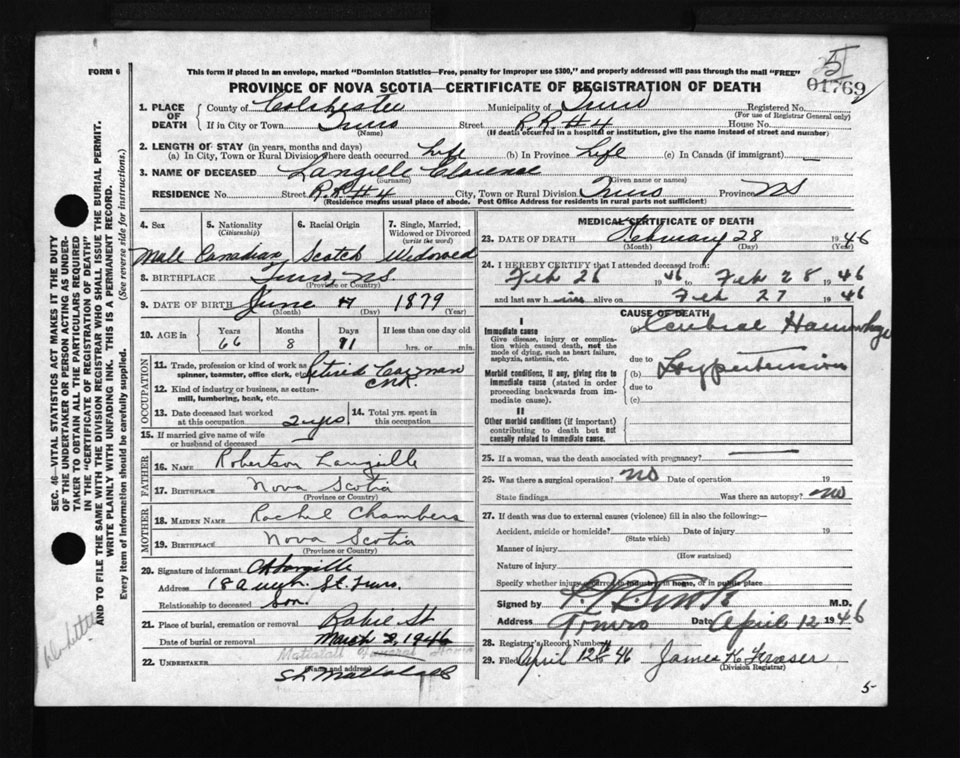 5
FORM 6
This form if placed in an envelope, marked "Dominion Statistics—Free, penalty for improper use $300," and properly addressed will pass through the mail "FREE"
01769
PROVINCE OF NOVA SCOTIA—CERTIFICATE OF REGISTRATION OF DEATH
1. PLACE OF DEATH
County of Colchester Municipality of Truro Registered No.
(For use of Registrar General only)
If in City or Town Truro Street R.R.#4 House No.
(Name) (If death occurred in a hospital or institution, give the name instead of street and number)
2. LENGTH OF STAY (in years, months and days)
(a) In City, Town or Rural Division where death occurred Life (b) In Province Life (c) In Canada (if immigrant) —
3. NAME OF DECEASED Langille Clarence
(Surname) (Given name or names)
RESIDENCE No. Street R.R.#4 City, Town or Rural Division Truro Province NS
(Residence means usual place of abode. Post Office Address for residents in rural parts not sufficient)
4. Sex 5. Nationality (Citizenship) 6. Racial Origin 7. Single, Married, Widowed or Divorced (write the word)
Male Canadian Scotch Widowed
8. BIRTHPLACE Truro NS
(Province or Country)
9. DATE OF BIRTH June 17 1879
(Month) (Day) (Year)
10. AGE in Years Months Days If less than one day old
66 8 11 hrs. or min.
OCCUPATION
11. Trade, profession or kind of work as spinner, teamster, office clerk, etc. retired Carman
12. Kind of industry or business, as cotton-mill, lumbering, bank, etc. CNR.
13. Date deceased last worked at this occupation 2 yrs 14. Total yrs. spent in this occupation
15. If married give name of wife or husband of deceased
FATHER
16. NAME Robertson Langille
17. BIRTHPLACE Nova Scotia
(Province or Country)
MOTHER
18. MAIDEN NAME Rachel Chambers
19. BIRTHPLACE Nova Scotia
(Province or Country)
20. Signature of informant Langille
Address 18 St. Truro.
Relationship to deceased Son.
21. Place of burial, cremation or removal Robie St
Date of burial or removal March 2, 1946
Mattatall Funeral Home
22. UNDERTAKER Mattatall
(Name and address)
MEDICAL CERTIFICATE OF DEATH
23. DATE OF DEATH February 28 1946
(Month) (Day) (Year)
24. I HEREBY CERTIFY that I attended deceased from:
Feb 26 1946 to Feb 28 1946
and last saw him alive on Feb 27 1946
CAUSE OF DEATH
I
Immediate cause Cerebral Hemorrhage
Give disease, injury or complication which caused death, not the mode of dying, such as heart failure, asphyxia, asthenia, etc.
due to
Morbid conditions, if any, giving rise to immediate cause (stated in order proceeding backwards from immediate cause).
(b) Hypertension
due to
(c)
II
Other morbid conditions (if important) contributing to death but not causally related to immediate cause.
25. If a woman, was the death associated with pregnancy? —
26. Was there a surgical operation? no Date of operation 19
State findings Was there an autopsy? no
27. If death was due to external causes (violence) fill in also the following:—
Accident, suicide or homicide? Date of injury 19
(State which)
Manner of injury
(How sustained)
Nature of injury
Specify whether injury occurred in industry, in home, or in public place
Signed by M.D.
Address Truro Date April 12 1946
28. Registrar's Record Number
29. Filed April 12th 46 James K Fraser
(Division Registrar)
5
SEC. 46—VITAL STATISTICS ACT MAKES IT THE DUTY OF THE UNDERTAKER OR PERSON ACTING AS UNDERTAKER TO OBTAIN ALL THE PARTICULARS REQUIRED IN THE "CERTIFICATE OF REGISTRATION OF DEATH" AND TO FILE THE SAME WITH THE DIVISION REGISTRAR WHO SHALL ISSUE THE BURIAL PERMIT.
WRITE PLAINLY WITH UNFADING INK. THIS IS A PERMANENT RECORD.
Every item of information should be carefully supplied. (See reverse side for instructions.)